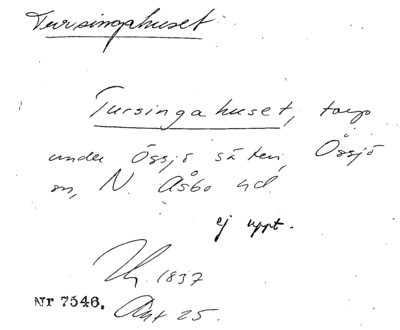 Tursingahuset
Tursingahuset, torp
under Össjö säteri, Össjö
sn, N. Åsbo hd.
ej uppt.
1837
Nr 7546. Akt 25.